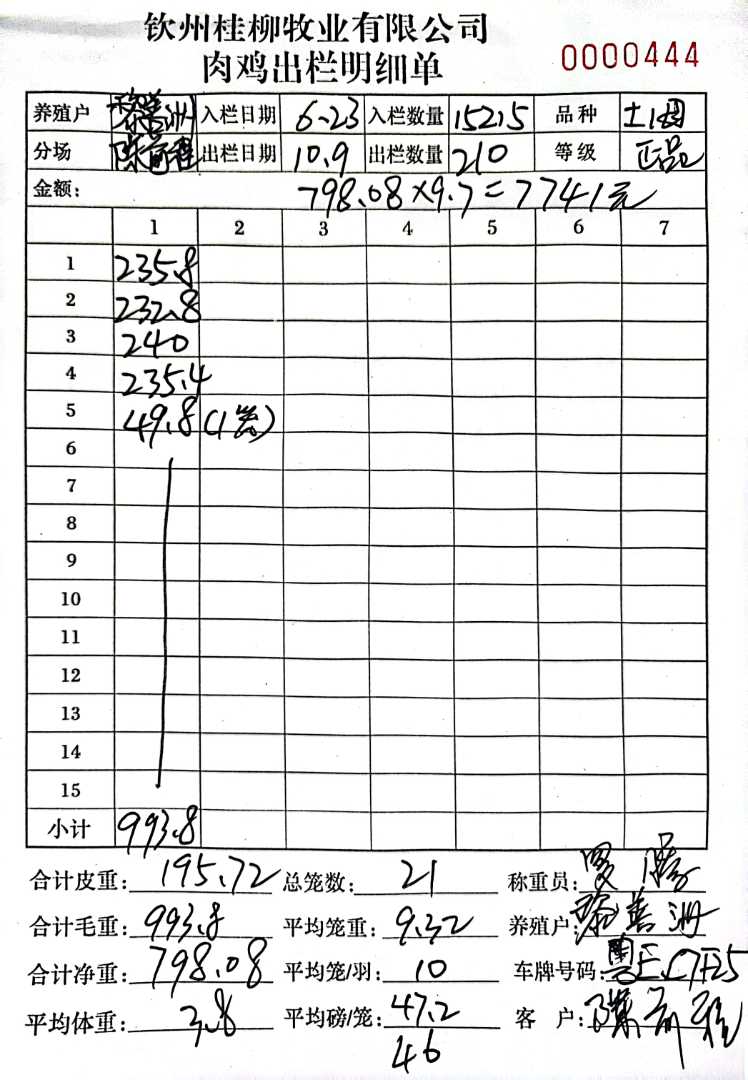 钦州桂柳牧业有限公司
肉鸡出栏明细单 0000444
养殖户 黎善洲 入栏日期 6-23 入栏数量 15215 品种
分场 出栏日期 10.9 出栏数量 210 等级 正品
金额: 798.08×9.7=7741元
1 2 3 4 5 6 7
1 235.8
2 232.8
3 240
4 235.4
5 49.8(1笼)
6
7
8
9
10
11
12
13
14
15
小计 993.8
合计皮重: 195.72 总笼数: 21 称重员:
合计毛重: 993.8 平均笼重: 9.32 养殖户: 黎善洲
合计净重: 798.08 平均笼/羽: 10 车牌号码:
平均体重: 3.8 平均磅/笼: 47.2 客户:
46